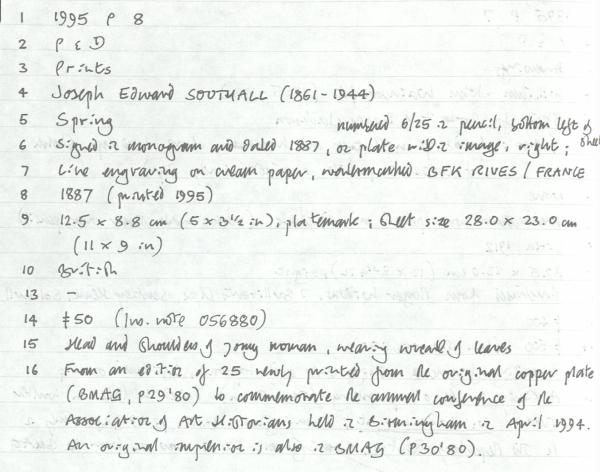 1 1995 P 8
2 P & D
3 Prints
4 Joseph Edward SOUTHALL (1861-1944)
5 Spring numbered 6/25 in pencil, bottom left of sheet
6 Signed in monogram and dated 1887, on plate within image, right;
7 Line engraving on cream paper, watermarked BFK RIVES / FRANCE
8 1887 (printed 1995)
9 12.5 x 8.8 cm (5 x 3 1/2 in), platemark; sheet size 28.0 x 23.0 cm
(11 x 9 in)
10 British
13 -
14 £50 (Inv. note 056880)
15 Head and Shoulders of young woman, wearing wreath of leaves
16 From an edition of 25 newly printed from the original copper plate
(BMAG, P29'80) to commemorate the annual conference of the
Association of Art Historians held in Birmingham in April 1994.
An original impression is also in BMAG (P30'80).